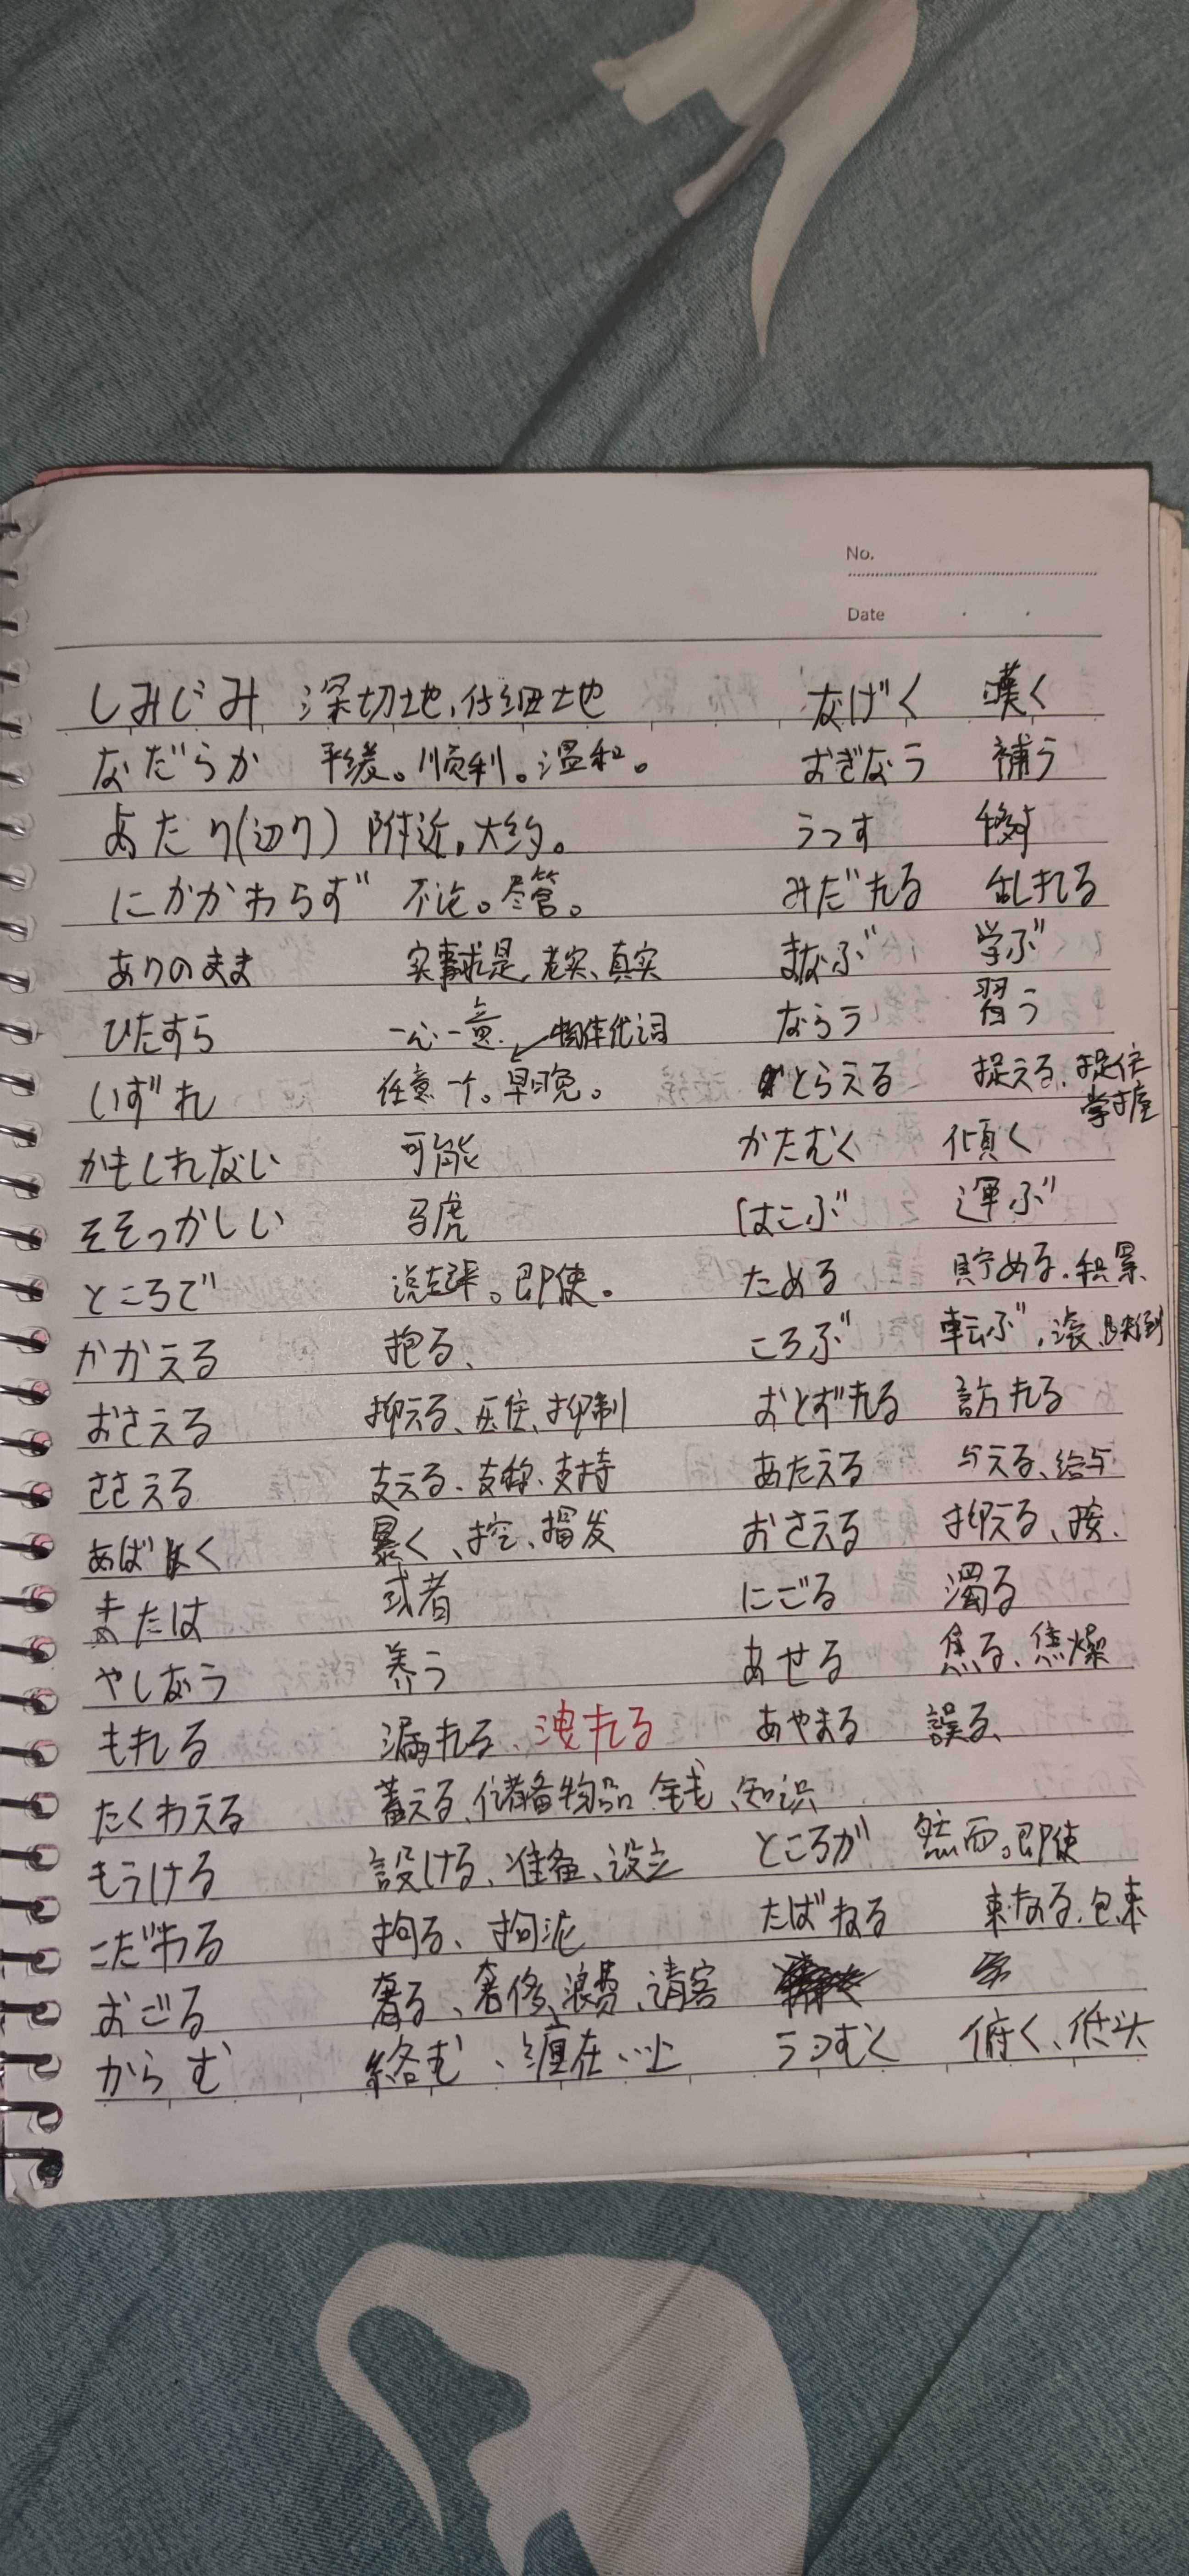 No.
Date
しみじみ 深切地,仔细地 なげく 嘆く
なだらか 平缓。顺利。温和。 おぎなう 補う
あたり(辺り) 附近。大约。 うつす 移す
にかかわらず 不论。尽管。 みだれる 乱れる
ありのまま 实事求是,老实、真实 まなぶ 学ぶ
ひたすら 一心一意. 物体代词 ならう 習う
いずれ 任意一个。早晚。 とらえる 捉える、捉住 掌握
かもしれない 可能 かたむく 傾く
そそっかしい 马虎 はこぶ 運ぶ
ところで 说起来。即使。 ためる 貯める、积累
かかえる 抱る、 ころぶ 転ぶ,滚,跌倒
おさえる 抑える、压住、抑制 おとずれる 訪れる
ささえる 支える、支称、支持 あたえる 与える、给与
あばく 暴く、挖、揭发 おさえる 抑える、按、
または 或者 にごる 濁る
やしなう 养う あせる 焦る、焦燥
もれる 漏れる、洩れる あやまる 誤る、
たくわえる 蓄える、储备物品 金钱、知识
もうける 設ける、准备、设立 ところが 然而。即使
こだわる 拘る、拘泥 たばねる 束なる、包束
おごる 奢る、奢侈、浪费、请客
からむ 絡む、缠在…上 うつむく 俯く、低头